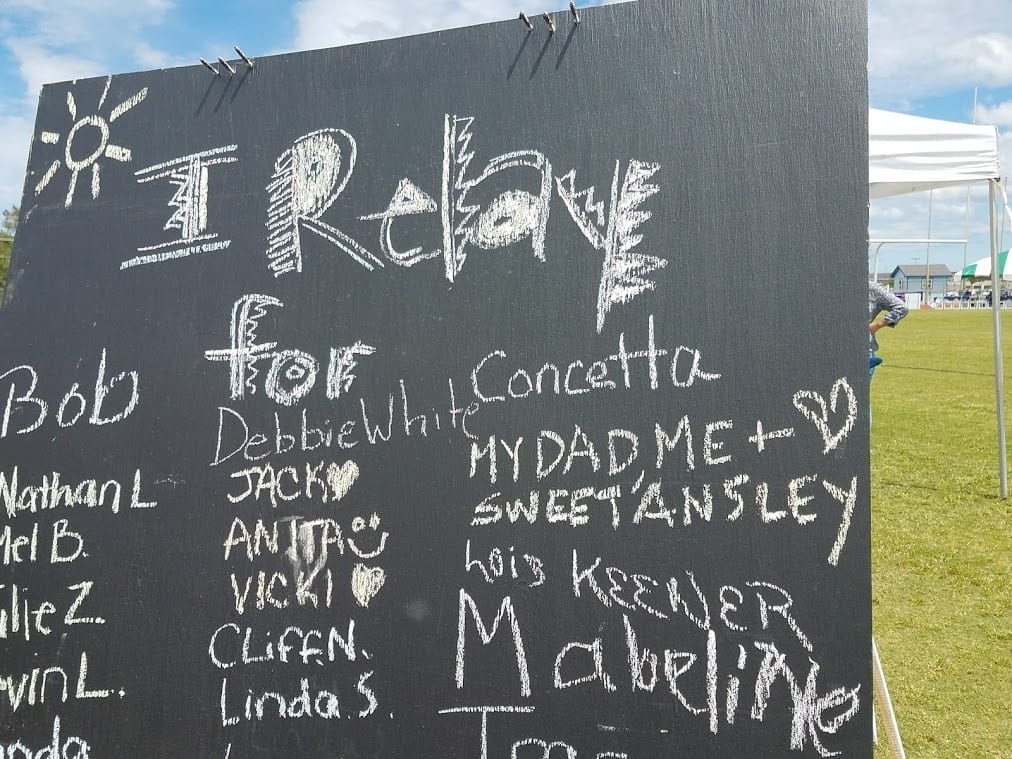 I Relay
for
Bob
Nathan L
Mel B.
Z.
L.
Debbie White
JACK
ANITA
VICKI
CLIFF N.
Linda S.
Concetta
MY DAD, ME +
SWEET ANSLEY
Lois KEENER
Mabeline